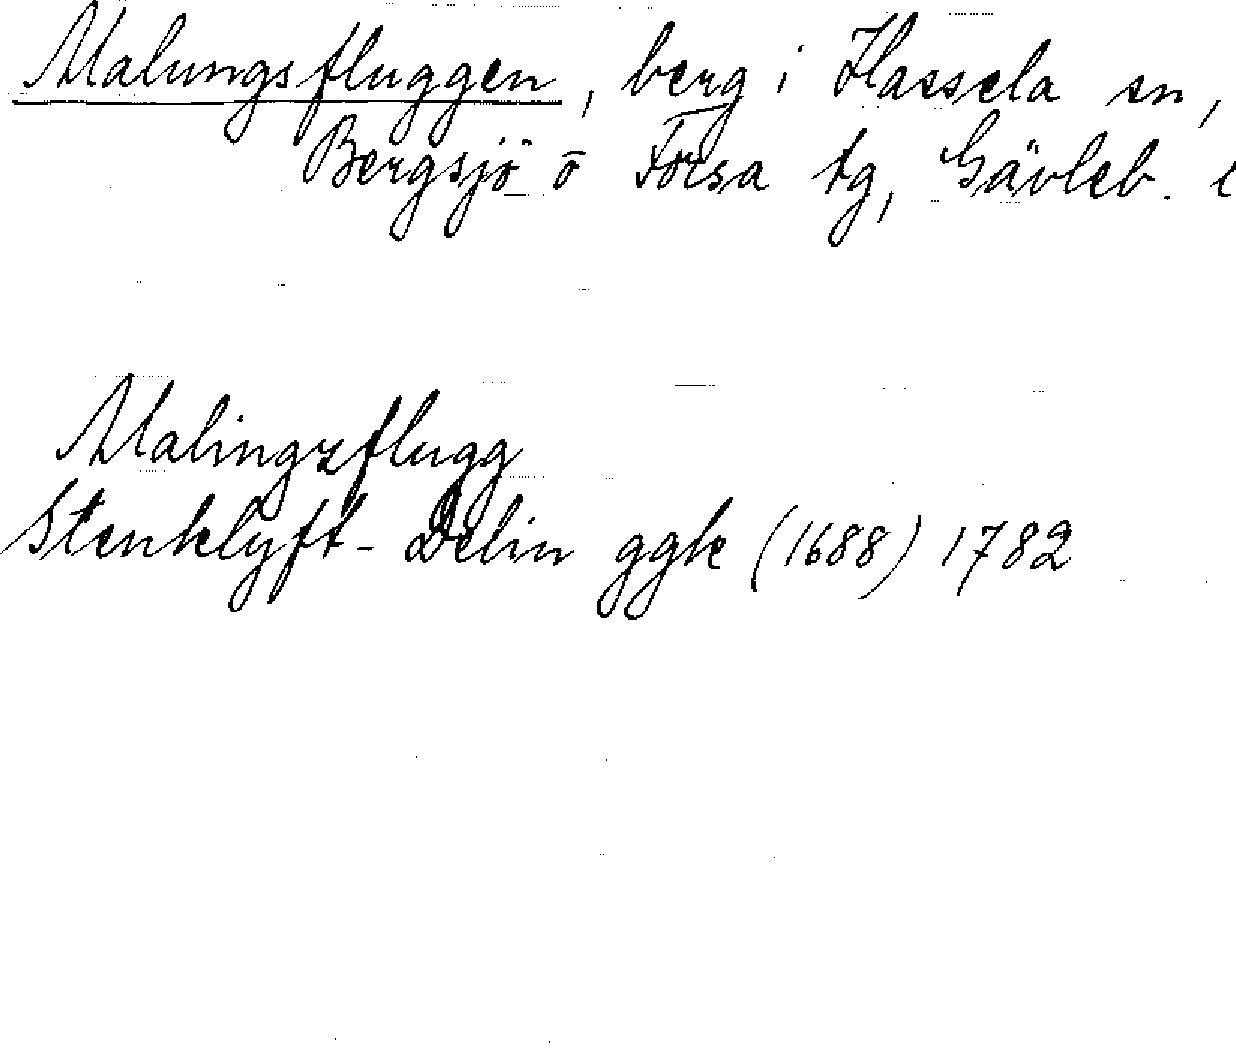 Malungsfluggen, berg i Hassela sn,
Bergsjö o Forsa tg, Gävleb. l
Malingzflugg
Stenklyft- Delin ggk (1688) 1782